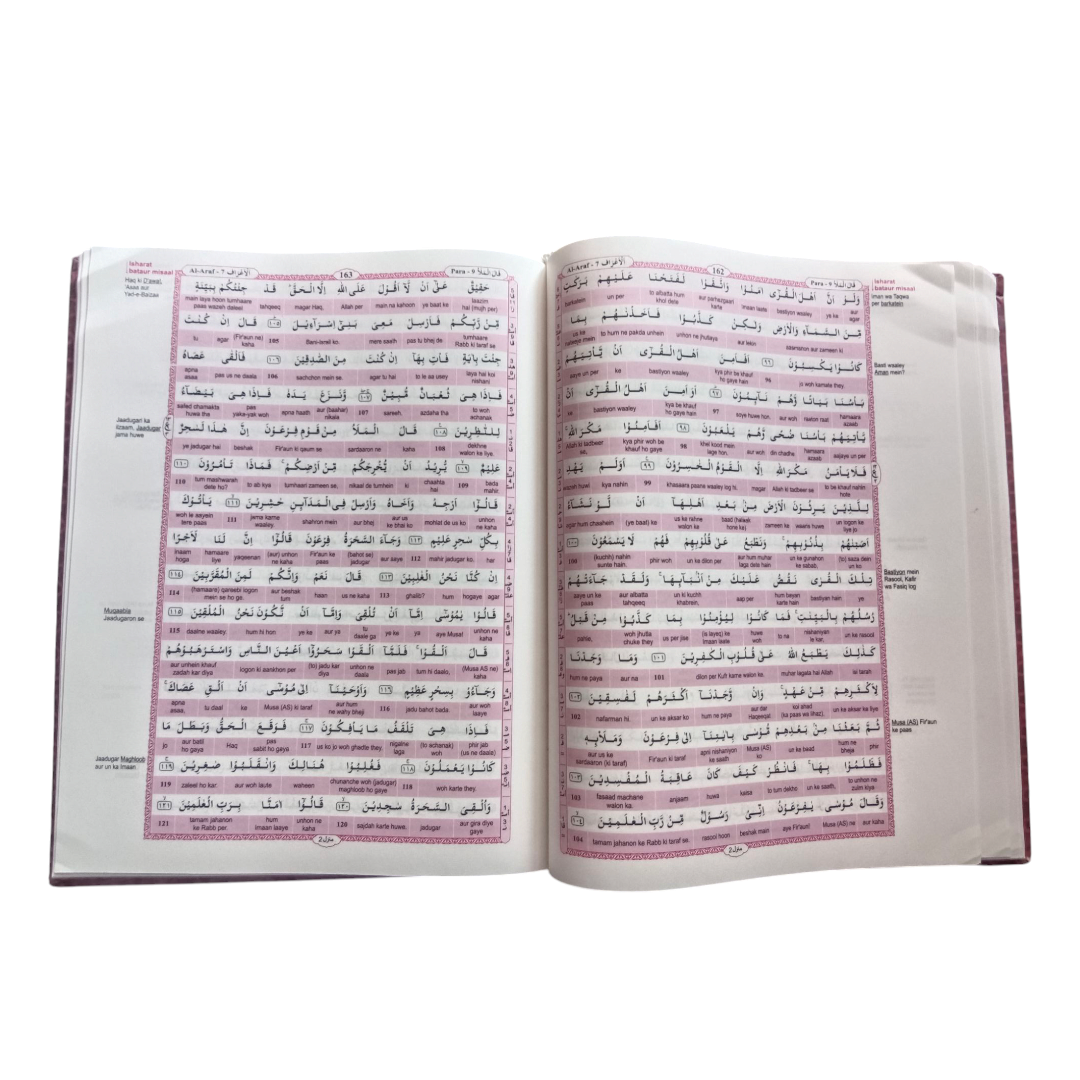 Al-Araf - 7 الْأَعْرَاف
162
Para - 9 قَالَ الْمَلَأُ
Isharat
bataur misaal
Iman wa Taqwa
per barkatein
وَلَوْ اَنَّ اَهْلَ الْقُرٰٓى اٰمَنُوْا وَاتَّقَوْا لَفَتَحْنَا عَلَيْهِمْ بَرَكٰتٍ
aur agar ye ke bastiyon waaley imaan laate aur parhezgaari karte to albatta hum khol dete un per barkatein
مِّنَ السَّمَآءِ وَالْاَرْضِ وَلٰكِنْ كَذَّبُوْا فَاَخَذْنٰهُمْ بِمَا
aasmanon aur zameen ki aur lekin unhon ne jhutlaya to hum ne pakda unhein us ke
كَانُوْا يَكْسِبُوْنَ ٩٦ اَفَاَمِنَ اَهْلُ الْقُرٰٓى اَنْ يَّاْتِيَهُمْ
jo woh kamate they. 96 kya phir be khauf ho gaye hain bastiyon waaley ke aaye un per
Basti waaley
Aman mein?
بَاْسُنَا بَيَاتًا وَّهُمْ نَآئِمُوْنَ ٩٧ اَوَاَمِنَ اَهْلُ الْقُرٰٓى اَنْ
hamaara azaab raaton raat aur woh soye huwe hon. 97 kya be khauf ho gaye hain bastiyon waaley ke
يَّاْتِيَهُمْ بَاْسُنَا ضُحًى وَّهُمْ يَلْعَبُوْنَ ٩٨ اَفَاَمِنُوْا مَكْرَ اللّٰهِ
aajaye un per hamaara azaab din chadhe aur woh khel kood mein lage hon. 98 kya phir woh be khauf ho gaye Allah ki tadbeer se,
فَلَا يَاْمَنُ مَكْرَ اللّٰهِ اِلَّا الْقَوْمُ الْخٰسِرُوْنَ ٩٩ اَوَلَمْ يَهْدِ
to be khauf nahin hote Allah ki tadbeer se magar khasaara paane waaley log hi. 99 kya nahin wazeh huwi
لِلَّذِيْنَ يَرِثُوْنَ الْاَرْضَ مِنْ بَعْدِ اَهْلِهَآ اَنْ لَّوْ نَشَآءُ
un logon ke liye jo waaris huwe zameen ke baad (halaak hone ke) us ke rahne walon ke (ye baat) ke agar hum chaahein
اَصَبْنٰهُمْ بِذُنُوْبِهِمْ وَنَطْبَعُ عَلٰى قُلُوْبِهِمْ فَهُمْ لَا يَسْمَعُوْنَ ١٠٠
(to) saza dein un ko un ke gunahon ke sabab. aur hum muhar laga dete hain un ke dilon per phir woh (kuchh) nahin sunte hain. 100
تِلْكَ الْقُرٰى نَقُصُّ عَلَيْكَ مِنْ اَنْۢبَآئِهَا وَلَقَدْ جَآءَتْهُمْ
ye bastiyan hain hum bayan karte hain aap per un ki kuchh khabrein, aur albatta tahqeeq aaye un ke paas
Bastiyon mein
Rasool, Kafir
wa Fasiq log
رُسُلُهُمْ بِالْبَيِّنٰتِ فَمَا كَانُوْا لِيُؤْمِنُوْا بِمَا كَذَّبُوْا مِنْ قَبْلُ
un ke rasool roshaniyan le kar, to na huwe woh (is layeq) ke imaan laate us per jise woh jhutla chuke they pahle,
كَذٰلِكَ يَطْبَعُ اللّٰهُ عَلٰى قُلُوْبِ الْكٰفِرِيْنَ ١٠١ وَمَا وَجَدْنَا
isi tarah muhar lagata hai Allah dilon per Kufr karne walon ke. 101 aur na hum ne paya
لِاَكْثَرِهِمْ مِّنْ عَهْدٍ وَاِنْ وَّجَدْنَآ اَكْثَرَهُمْ لَفٰسِقِيْنَ ١٠٢
un ke aksar ke liye koi ahad (ka paas wa lihaz). aur dar Haqeeqat hum ne paya un ke aksar ko nafarman hi. 102
ثُمَّ بَعَثْنَا مِنْۢ بَعْدِهِمْ مُّوْسٰى بِاٰيٰتِنَآ اِلٰى فِرْعَوْنَ وَمَلَا۟ئِهٖ
phir hum ne bheja un ke baad Musa (AS) ko apni roshaniyon ke saath Fir'aun ki taraf aur us ke sardaaron (ki taraf)
Musa (AS) Fir'aun
ke paas
فَظَلَمُوْا بِهَا فَانْظُرْ كَيْفَ كَانَ عَاقِبَةُ الْمُفْسِدِيْنَ ١٠٣
to unhon ne zulm kiya un ke saath, to tum dekho kaisa huwa anjaam fasaad machane walon ko. 103
وَقَالَ مُوْسٰى يٰفِرْعَوْنُ اِنِّىْ رَسُوْلٌ مِّنْ رَّبِّ الْعٰلَمِيْنَ ١٠٤
aur kaha Musa (AS) ne aye Fir'aun! beshak main rasool hoon tamam jahanon ke Rabb ki taraf se. 104
منزل 2
Al-Araf - 7 الْأَعْرَاف
163
Para - 9 قَالَ الْمَلَأُ
Isharat
bataur misaal
Haq ki D'awat,
'Asaa aur
Yad-e-Baizaa
حَقِيْقٌ عَلٰٓى اَنْ لَّآ اَقُوْلَ عَلَى اللّٰهِ اِلَّا الْحَقَّ قَدْ جِئْتُكُمْ بِبَيِّنَةٍ
laazim hai (mujh per) ye baat ke main na kahoon Allah per magar Haq, tahqeeq main laya hoon tumhaare paas wazeh daleel
مِّنْ رَّبِّكُمْ فَاَرْسِلْ مَعِيَ بَنِىْٓ اِسْرَآءِيْلَ ١٠٥ قَالَ اِنْ كُنْتَ
tumhaare Rabb ki taraf se pas tu bhej de mere saath Bani-israil ko. 105 (Fir'aun ne) kaha agar tu
جِئْتَ بِاٰيَةٍ فَاْتِ بِهَآ اِنْ كُنْتَ مِنَ الصّٰدِقِيْنَ ١٠٦ فَاَلْقٰى عَصَاهُ
laya hai koi nishani to le aa usey agar tu hai sachchon mein se. 106 pas us ne daala apna asaa
فَاِذَا هِىَ ثُعْبَانٌ مُّبِيْنٌ ١٠٧ وَّنَزَعَ يَدَهٗ فَاِذَا هِىَ بَيْضَآءُ
to woh achanak azdaha tha sareeh. 107 aur (baahar) nikala apna haath pas yaka-yak woh safed chamakta huwa tha
لِلنّٰظِرِيْنَ ١٠٨ قَالَ الْمَلَاُ مِنْ قَوْمِ فِرْعَوْنَ اِنَّ هٰذَا لَسٰحِرٌ
dekhne walon ke liye. 108 kaha sardaaron ne Fir'aun ki qaum se beshak ye jadugar hai
Jaadugari ka
ilzaam, Jaadugar
jama huwe
عَلِيْمٌ ١٠٩ يُّرِيْدُ اَنْ يُّخْرِجَكُمْ مِّنْ اَرْضِكُمْ فَمَاذَا تَاْمُرُوْنَ ١١٠
bada mahir. 109 chaahta hai ke nikaal de tumhein tumhaari zameen se. to ab kya tum mashwarah dete ho? 110
قَالُوْٓا اَرْجِهْ وَاَخَاهُ وَاَرْسِلْ فِى الْمَدَآئِنِ حٰشِرِيْنَ ١١١ يَاْتُوْكَ
unhon ne kaha mohlat de us ko aur us ke bhai ko aur bhej shahron mein jama karne waaley. 111 woh le aayein tere paas
بِكُلِّ سٰحِرٍ عَلِيْمٍ ١١٢ وَجَآءَ السَّحَرَةُ فِرْعَوْنَ قَالُوْٓا اِنَّ لَنَا لَاَجْرًا
har mahir jadugar ko. 112 aur aaye (bahot se) jadugar Fir'aun ke paas (aur) unhon ne kaha yaqeenan hamaare liye inaam hoga
اِنْ كُنَّا نَحْنُ الْغٰلِبِيْنَ ١١٣ قَالَ نَعَمْ وَاِنَّكُمْ لَمِنَ الْمُقَرَّبِيْنَ ١١٤
agar hogaye hum ghalib? 113 us ne kaha haan aur beshak tum (hamaare) qareebi logon mein se ho ge. 114
قَالُوْا يٰمُوْسٰٓى اِمَّآ اَنْ تُلْقِىَ وَاِمَّآ اَنْ نَّكُوْنَ نَحْنُ الْمُلْقِيْنَ ١١٥
unhon ne kaha aye Musa! ya ye ke tu daale ga aur ya ye ke hum hi hon daalne waaley. 115
Muqaabla
Jaadugaron se
قَالَ اَلْقُوْا فَلَمَّآ اَلْقَوْا سَحَرُوْٓا اَعْيُنَ النَّاسِ وَاسْتَرْهَبُوْهُمْ
(Musa AS ne) kaha tum hi daalo, pas jab unhon ne daala (to) jadu kar diya logon ki aankhon per aur unhein khauf zadah kar diya
وَجَآءُوْ بِسِحْرٍ عَظِيْمٍ ١١٦ وَاَوْحَيْنَآ اِلٰى مُوْسٰٓى اَنْ اَلْقِ عَصَاكَ
aur woh laaye jadu bahot bada. 116 aur hum ne wahy bheji Musa (AS) ki taraf ke tu daal apna asaa,
فَاِذَا هِىَ تَلْقَفُ مَا يَاْفِكُوْنَ ١١٧ فَوَقَعَ الْحَقُّ وَبَطَلَ مَا
phir jab (us ne daala) (to achanak) woh nigalne laga us ko jo woh ghadte they. 117 pas sabit ho gaya Haq aur batil ho gaya jo
كَانُوْا يَعْمَلُوْنَ ١١٨ فَغُلِبُوْا هُنَالِكَ وَانْقَلَبُوْا صٰغِرِيْنَ ١١٩
woh karte they. 118 chunanche woh (jadugar) maghloob ho gaye waheen aur woh laute zaleel ho kar. 119
Jaadugar Maghloob
aur un ka Imaan
وَاُلْقِىَ السَّحَرَةُ سٰجِدِيْنَ ١٢٠ قَالُوْٓا اٰمَنَّا بِرَبِّ الْعٰلَمِيْنَ ١٢١
aur gira diye gaye jadugar sajdah karte huwe. 120 unhon ne kaha hum imaan laaye tamam jahanon ke Rabb per. 121
منزل 2